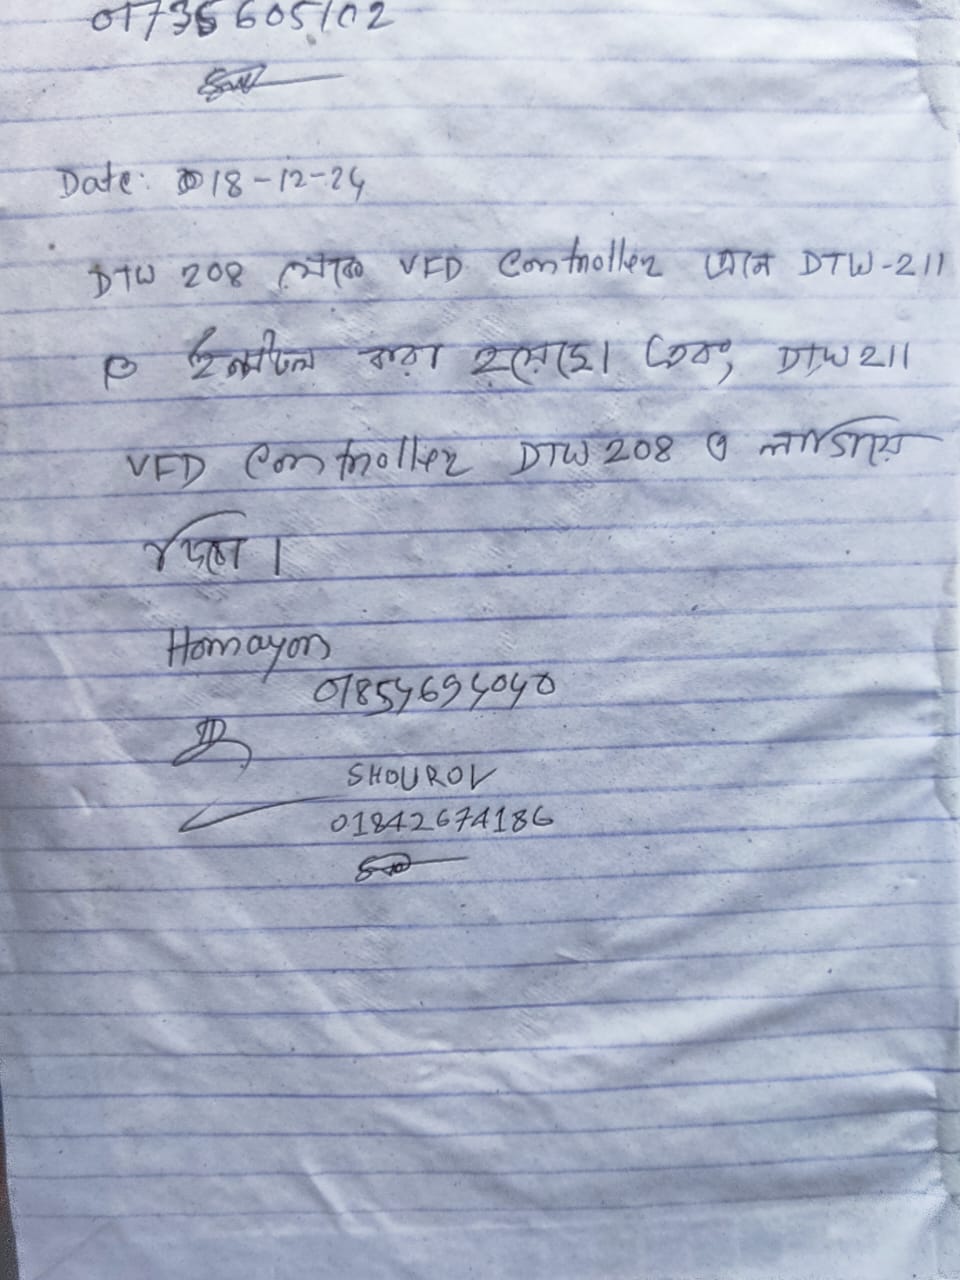 01735605102
Date: 18-12-24
DTW 208 থেকে VFD Controller এনে DTW-211
এ ইনস্টল করা হয়েছে। এবং, DTW 211
VFD Controller DTW 208 এ লাগিয়ে
দিবো।
Homayon
01854694040
SHOUROV
01842674186